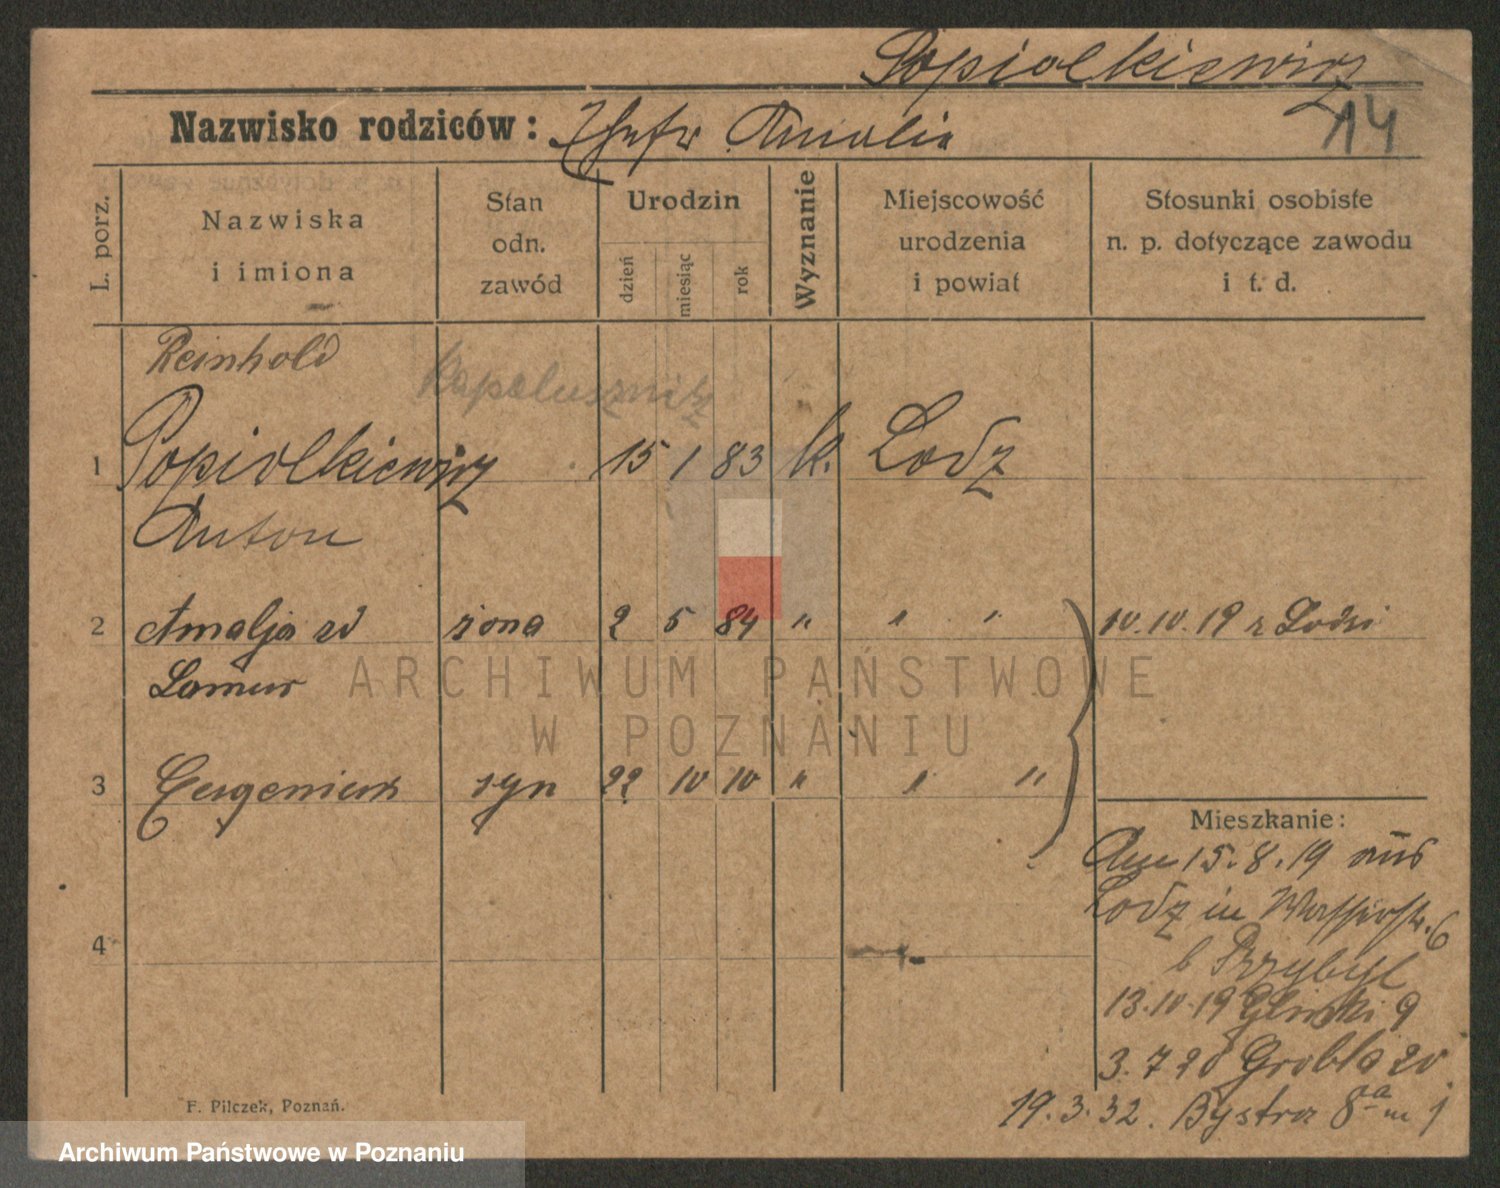 Popiolkiewicz
14
Nazwisko rodziców: Amalia
L. porz.
Nazwiska
i imiona
Stan
odn.
zawód
Urodzin
dzień
miesiąc
rok
Wyznanie
Miejscowość
urodzenia
i powiat
Stosunki osobiste
n. p. dotyczące zawodu
i t. d.
Reinhold
Kapelusznik
1 Popiolkiewicz 15 1 83 k. Lodz
Anton
2 Amalja zd żona 2 5 84 " " " 10.10.19 z Lodzi
3 Eugeniusz syn 22 10 10 " " "
Mieszkanie:
15.8.19 aus
Lodz in Wasserstr. 6
b Przybyl
13.10.19 9
3.7 20 Grobla 20
19.3.32. Bystra 8a m 1
4
F. Pilczek, Poznań.
ARCHIWUM PAŃSTWOWE
W POZNANIU
Archiwum Państwowe w Poznaniu